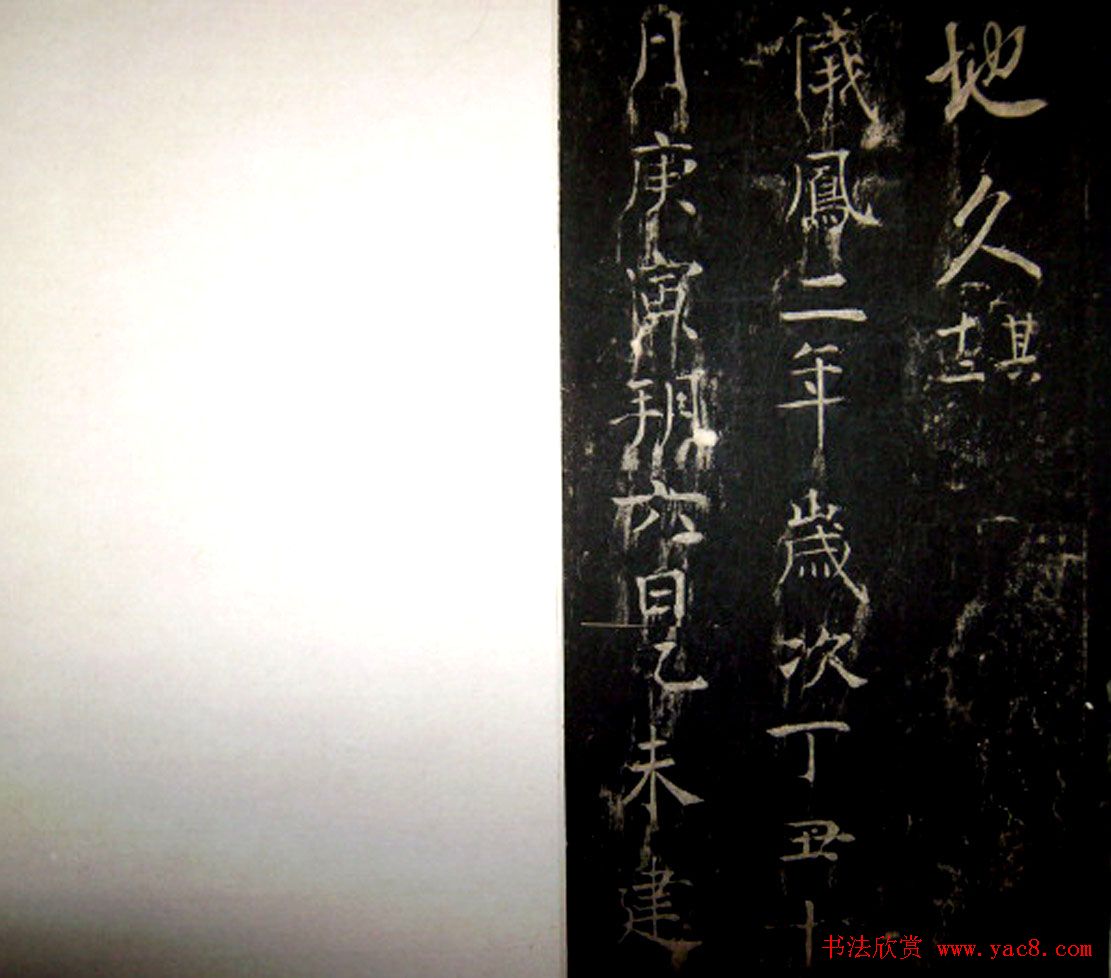 地久其十二
儀鳳二年歲次丁丑十
月庚寅朔六日乙未建
书法欣赏 www.yac8.com